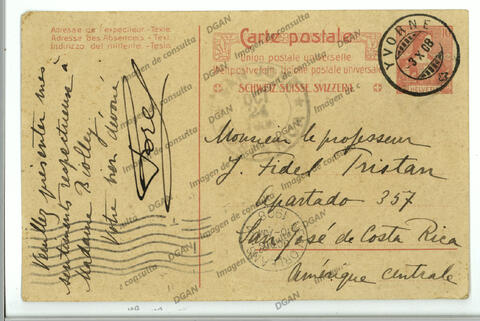 Adresse de l'expéditeur - Texte
Adresse des Absenders - Text
Indirizzo del mittente - Testo
Carte postale
Union postale universelle
Weltpostverein Unione postale universale
SCHWEIZ SUISSE SVIZZERA
HELVETIA
YVORNE
3 X 08
Veuillez présenter mes
sentiments respectueux à
Madame Biolley
Votre bien dévoué
Forel
Monsieur le professeur
J. Fidel Tristan
Apartado 357
San José de Costa Rica
Amérique centrale
NEW ORLEANS
1908
DGAN
Imagen de consulta